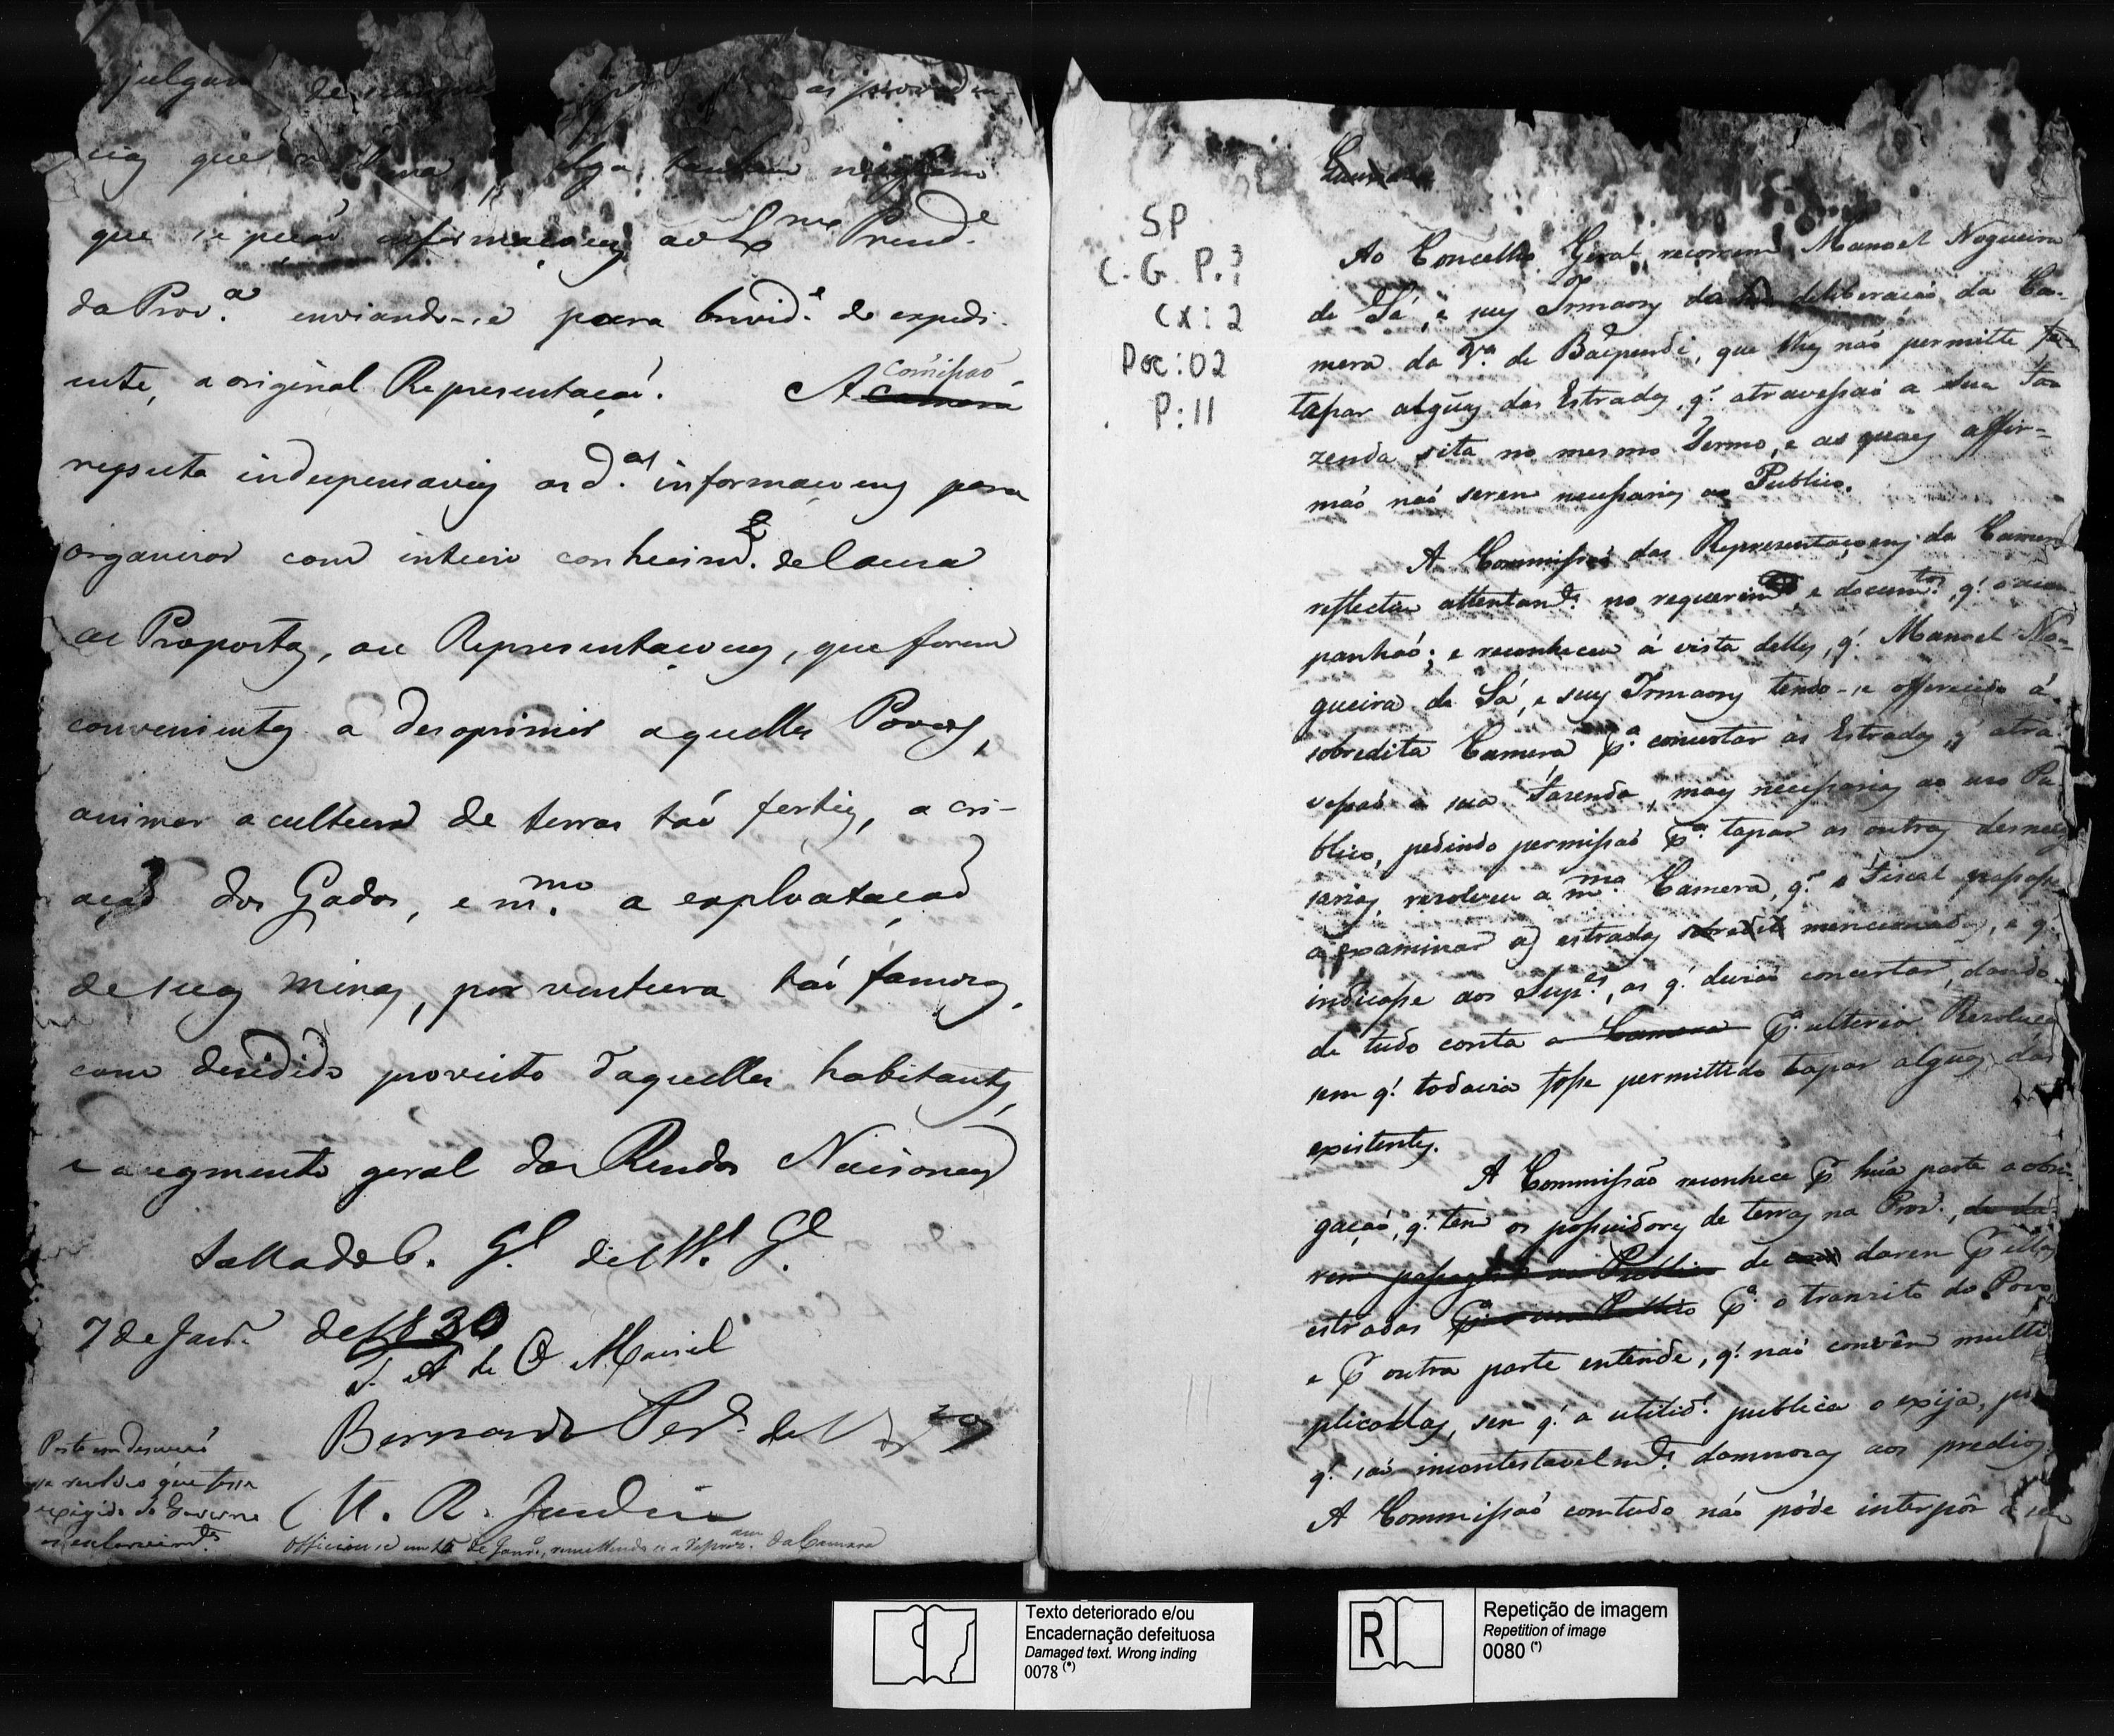 julgar de
as providen-
cias que a julga tambem
que se peção informaçoens ao Ex.mo Prezid.e
da Prov.a enviando-se para brevid.e do expedi-
ente, a original Reprezentação. A Comissão Camera
reputa indispensaveis as d.as informaçoens para
organizar com inteiro conhecim.to de Causa
as Propostas, ou Reprezentaçoens, que forem
convenientes a desoprimir aquelles Povos,
animar a cultura de terras tão ferteis, a cri-
ação dos Gados, e m.mo a exploatação
de suas minas, por ventura tão famozas,
com decidido proveito d'aquelles habitantes,
e augmento geral das Rendas Nacionaes
Salla do C. G.l del M.s G.s
7 de Janr.o de 1830
J. A. de O. Maciel
Bernardo Per.a de Vas.cos
M. R. Jardim
Posto em discussão
se rezolveo que fosse
exigido do Governo
os esclarecim.tos
Officiou-se em 15 de Janr.o, remettendo-se a Reprez.am da Camara
SP
C. G. P. 3
CX: 2
Doc: 02
P: 11
Ao Concelho Geral recorrem Manoel Nogueira
de Sá, e seus Irmaons da deliberação da Ca-
mera da V.a de Baependi, que lhes não permitte
tapar alguas das Estradas, q. atravessão a sua Fa
zenda sita no mesmo Termo, e as quaes affir-
mão não serem necessarias ao Publico.
A Commissão das Reprezentaçoens da Camera
reflectio attentam.te no requerim.to e docum.tos, q. o acom
panhão; e reconheceu á vista delles, q. Manoel No-
gueira de Sá, e seus Irmaons tendo-se offerecido á
sobredita Camera p.a concertar as Estradas, q. atra
vessão a sua Fazenda, mais necessarias ao uso Pu
blico, pedindo permissão p.a tapar as outras desneces
sarias, rezolveu a m.ma Camera, q. o Fiscal passasse
a examinar as estradas sobredit mencionadas, e q.
indicasse aos Sup.es, as q. devião concertar, dando
de tudo conta a Camera p.a ulterior Rezolução
sem q. todavia fosse permittido tapar alguas das
existentes.
A Commissão reconhece p. hũa parte a obri
gação, q. tem os possuidores de terras na Prov.a, de da
rem passagem ao Publico de darem p. ellas
estradas p.a o uso Publico p.a o tranzito do Povo,
e p. outra parte entende, q. não convêm multi
plicallas, sem q. a utilid.e publica o exija,
q. são incontestavelm.te damnozas aos predios.
A Commissão comtudo não póde interpôr o seu
Texto deteriorado e/ou
Encadernação defeituosa
Damaged text. Wrong inding
0078 (*)
R
Repetição de imagem
Repetition of image
0080 (*)